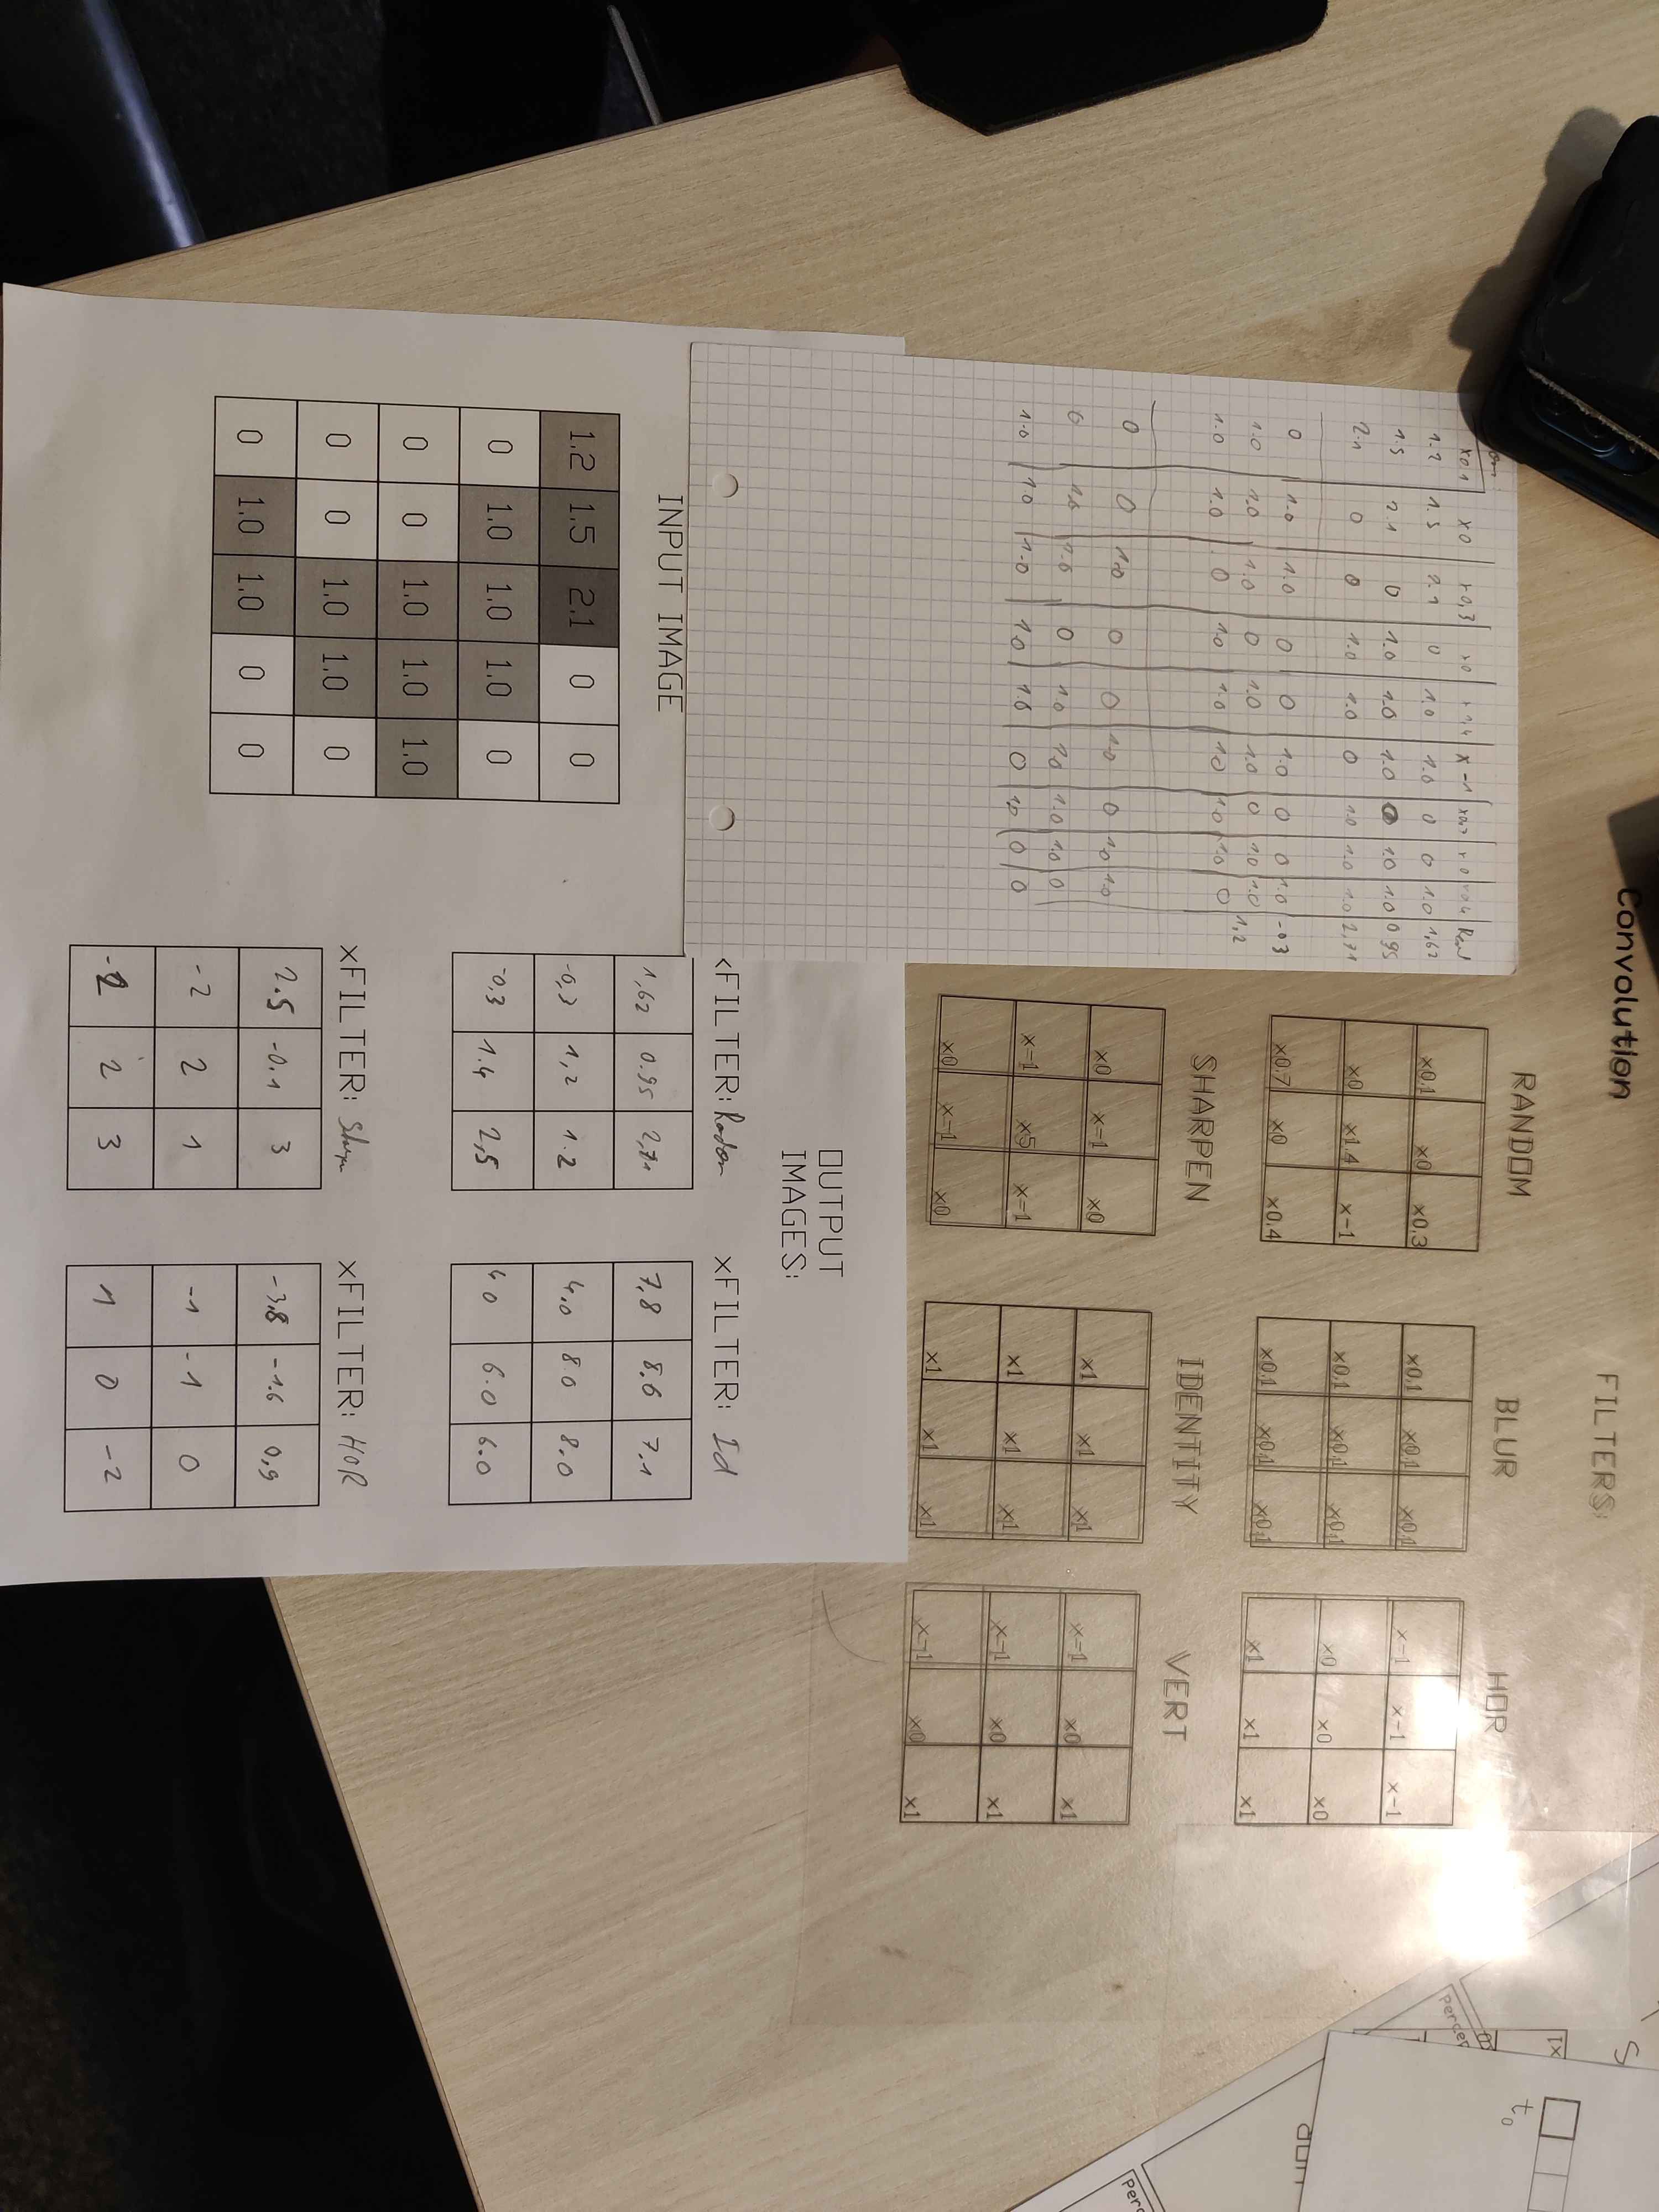 Convolution
FILTERS:
RANDOM
×0.1 ×0 ×0.3
×0 ×1.4 ×-1
×0.7 ×0 ×0.4
BLUR
×0.1 ×0.1 ×0.1
×0.1 ×0.1 ×0.1
×0.1 ×0.1 ×0.1
HOR
×-1 ×-1 ×-1
×0 ×0 ×0
×1 ×1 ×1
SHARPEN
×0 ×-1 ×0
×-1 ×5 ×-1
×0 ×-1 ×0
IDENTITY
×1 ×1 ×1
×1 ×1 ×1
×1 ×1 ×1
VERT
×-1 ×0 ×1
×-1 ×0 ×1
×-1 ×0 ×1
x0.1 x0 x0,3 x0 x1,4 x-1 x0,7 x0 x0,4
1.2 1.5 2.1 0 1.0 1.0 0 0 1.0 1,62
1.5 2.1 0 1.0 1.0 1.0 0 1.0 1.0 0.95
2.1 0 0 1.0 1.0 0 1.0 1.0 1.0 2,71
0 1.0 1.0 0 0 1.0 0 0 1.0 -0.3
1.0 1.0 1.0 0 1.0 1.0 0 1.0 1.0 1,2
1.0 1.0 0 1.0 1.0 1.0 1.0 1.0 0
0 0 1.0 0 0 1.0 0 1.0 1.0
0 1.0 1.0 0 1.0 1.0 1.0 1.0 0
1.0 1.0 1.0 1.0 1.0 0 1.0 0 0
INPUT IMAGE
1.2 1.5 2.1 0 0
0 1.0 1.0 1.0 0
0 0 1.0 1.0 1.0
0 0 1.0 1.0 0
0 1.0 1.0 0 0
OUTPUT
IMAGES:
FILTER: Radom
1,62 0.95 2,71
-0,3 1,2 1.2
-0,3 1.4 2,5
xFILTER: Id
7,8 8.6 7.1
4.0 8.0 8.0
4.0 6.0 6.0
xFILTER: Sharpn
2.5 -0.1 3
-2 2 1
-2 2 3
xFILTER: HOR
-3,8 -1.6 0,9
-1 -1 0
1 0 -2
t0